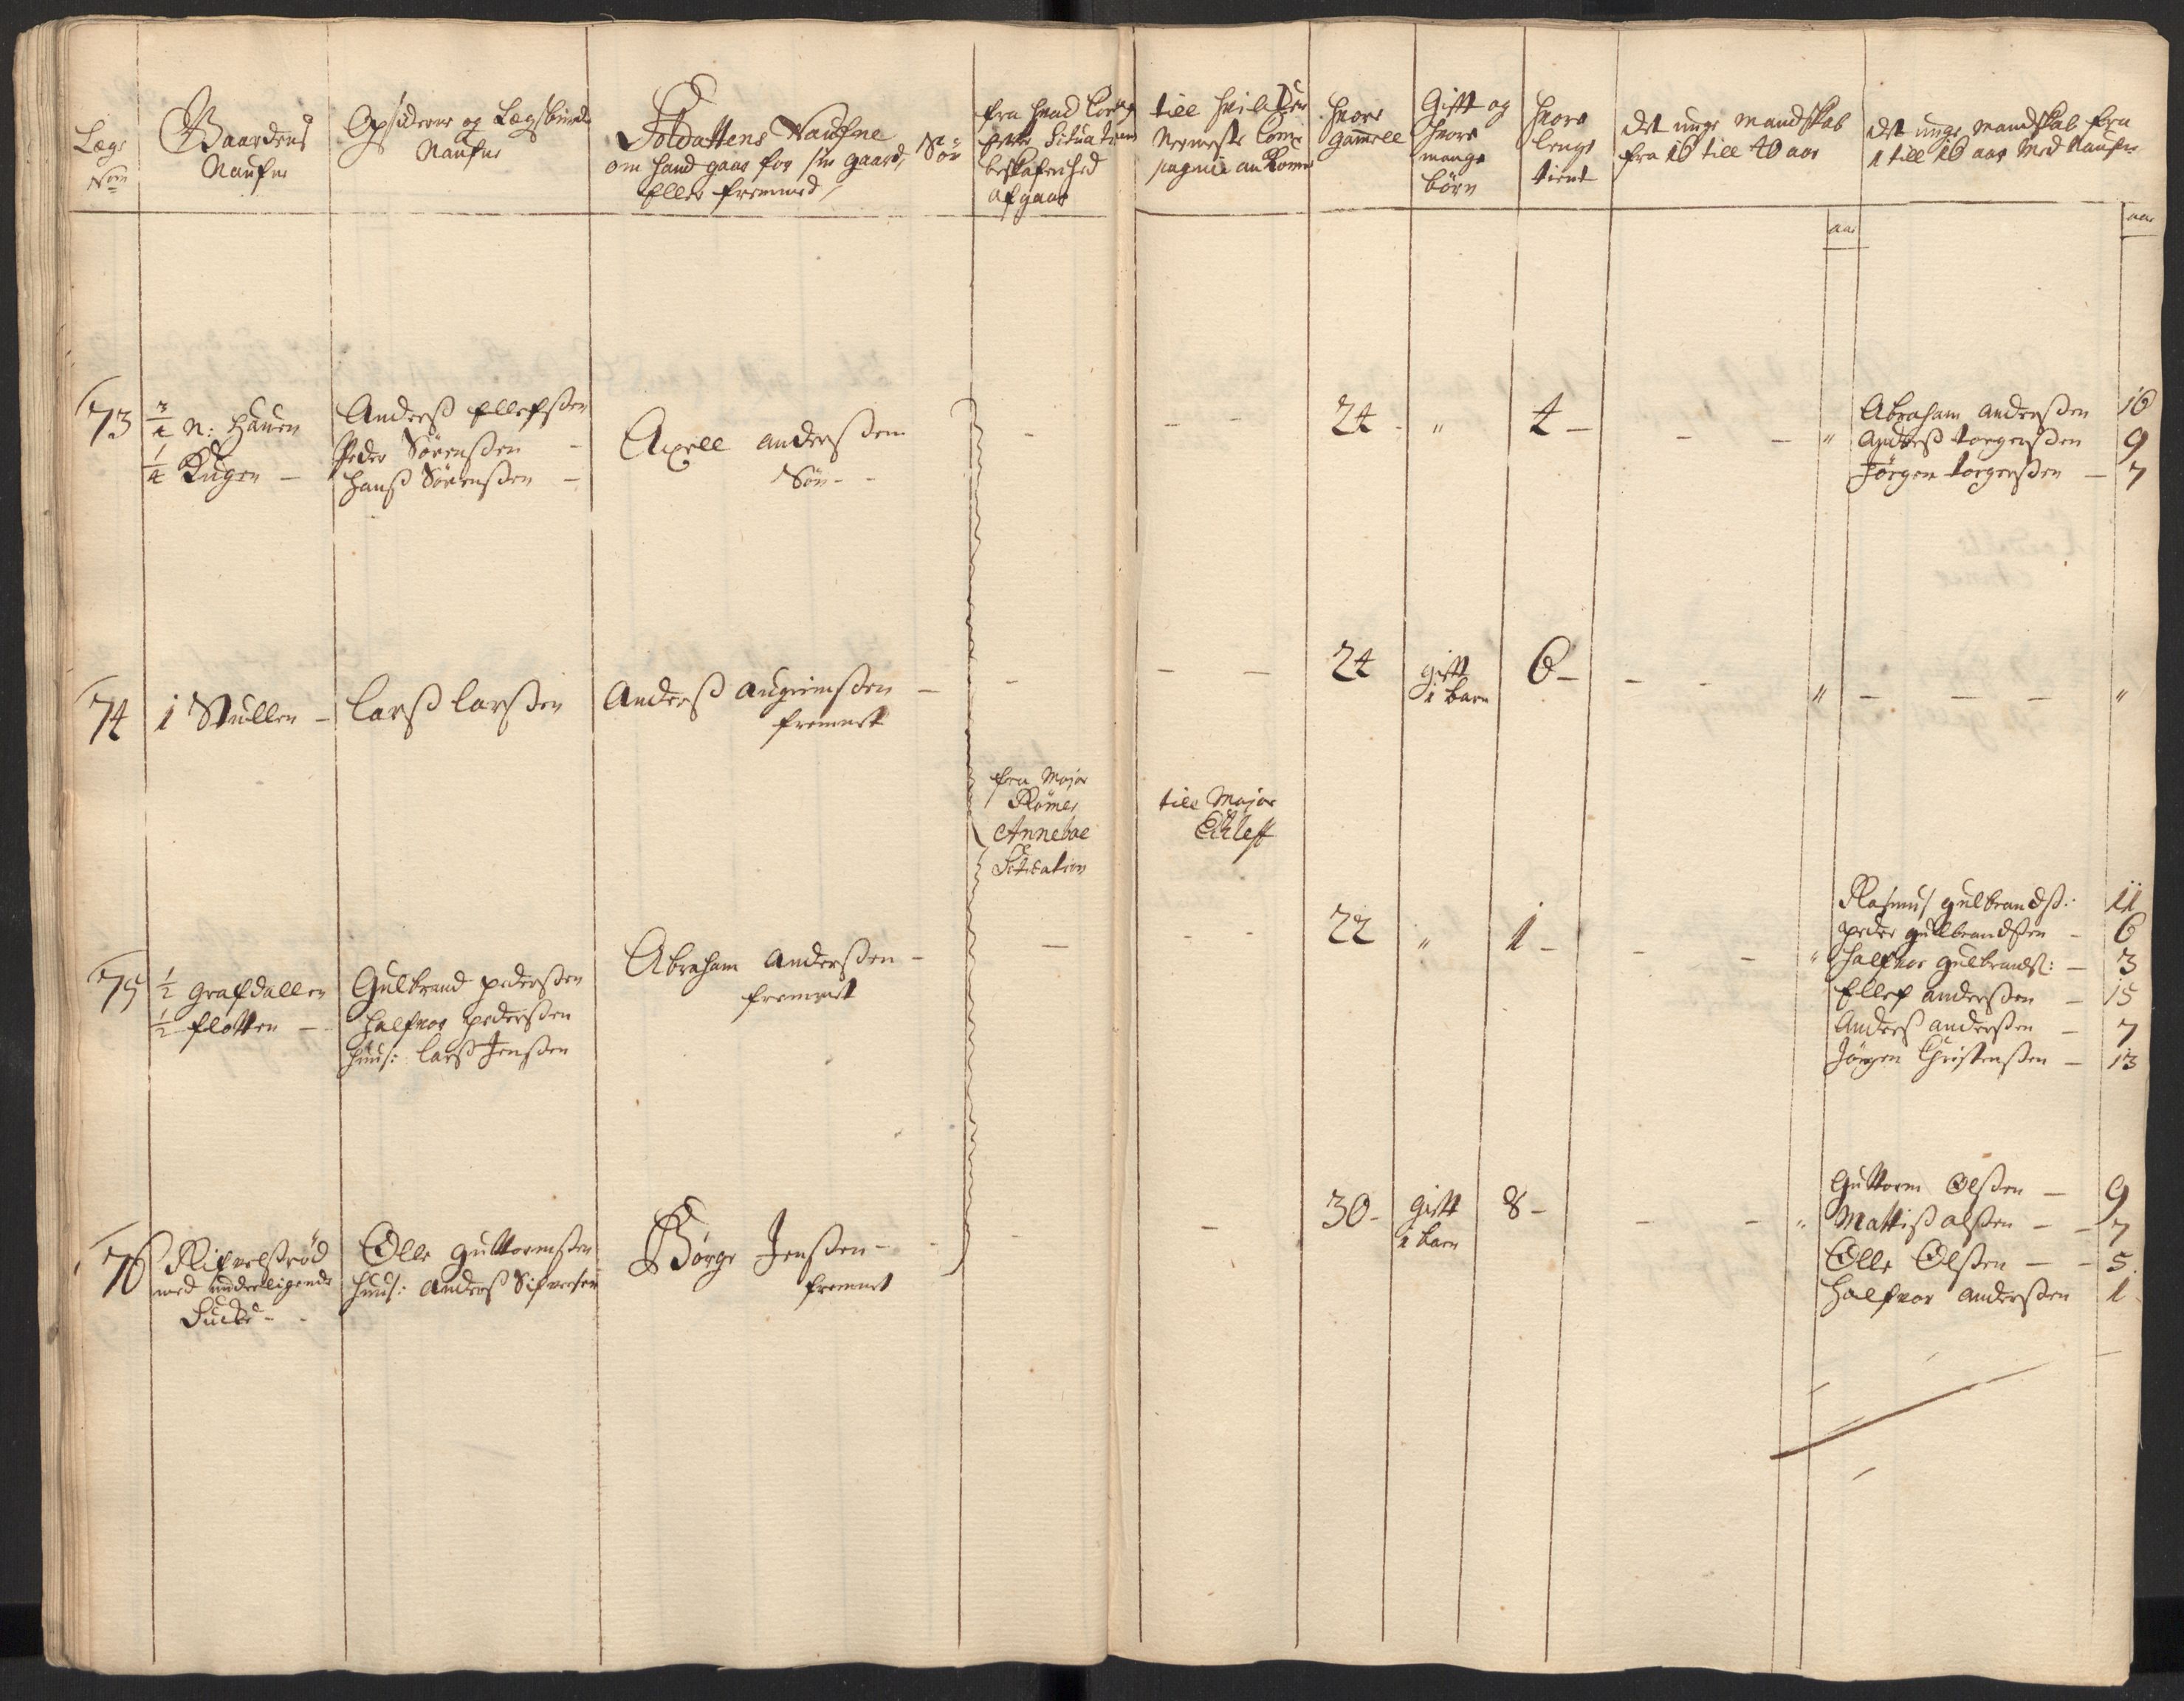 Lægs
Nom
Gaardens
Naufne
Opsiderne og Lægsbunds
Naufne
Soldattens Naufne Sön
om hand gaar for sin gaard,
eller fremmed,
fra hvad Comp
Situation
beskafenhed
afgaar
till hvilcken
Nermeste Com:
pagnie anKomer
hvore
Gamell
Gifft og
hvore
mange
börn
hvore
lenge
tient
Det unge Mandskab
fra 16 till 40 aar
aar
Det unge Mandskab fra
1 till 16 aar Med Naufn
aar
73
3/4 N: Hauen
1/4 Kugen -
Anders Ellefsßen
Peder Sörensßen -
Hanß Sörensßen -
Axell Andersßen
Sön - -
-
- -
24 -
"
4 -
- - "
Abraham Andersßen 16
Andreß torgersßen 9
Jörgen torgersßen - 7
74
1 Stullen -
Larß Larsßen
Anderß Augrimsßen -
fremmet
-
- -
24
gifft
1 barn
6 -
- - "
- - - "
fra Major
Römer
Annebae
Situation
till Major
Edleff
75
1/2 Grafdallen
1/2 Flotten -
Gulbrand Pedersßen
Halfvor Pedersßen
huus: Larß Jensßen
Abraham Andersßen -
fremmet
-
- -
22
"
1 -
- - "
Rasmus Gulbrandß: 11
Peder Gulbrandsßen - 6
Halfvor Gulbrandß: - 3
Ellef Andersßen - 15
Anderß Andersßen - 7
Jörgen Christensßen - 13
76
Rifvelsröd
med underligende
Olle Guttormsßen
huus: Anderß Sifversen
Börge Jensßen - -
fremmet
-
-
30 -
gifft
1 barn
8 -
- - "
Guttorm Olsßen - 9
Mattiß Olsßen - - 7
Olle Olsßen - - 5
Halfvor Andersßen 1